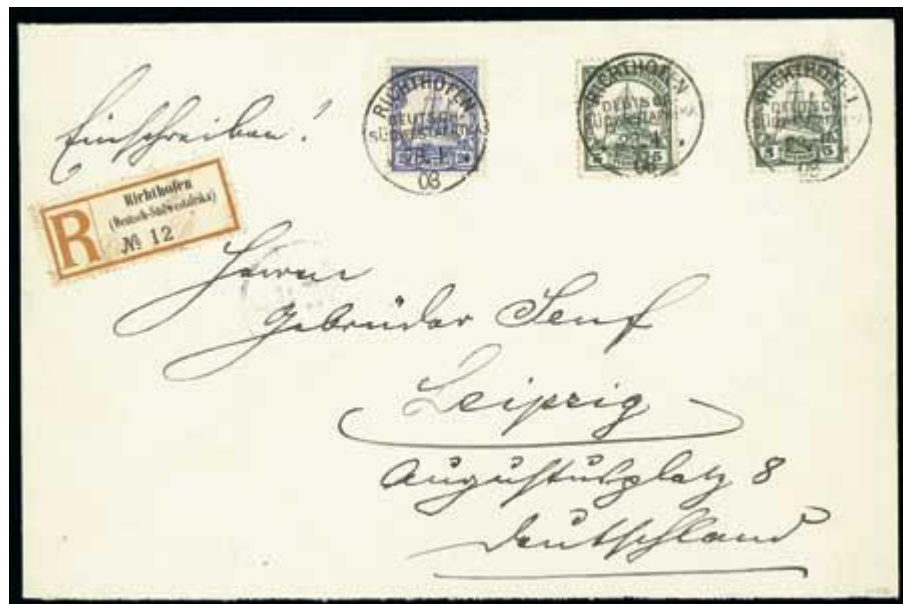 RICHTHOFEN
DEUTSCH-
SÜDWESTAFRIKA
28. 1.
08
RICHTHOFEN
DEUTSCH-
SÜDWESTAFRIKA
08
5 5
RICHTHOFEN
DEUTSCH-
SÜDWESTAFRIKA
08
5 5
Einschreiben!
R
Richthofen
(Deutsch-Südwestafrika)
№ 12
Herren
Gebrüder Senf
Leipzig
Augustusplatz 8
Deutschland